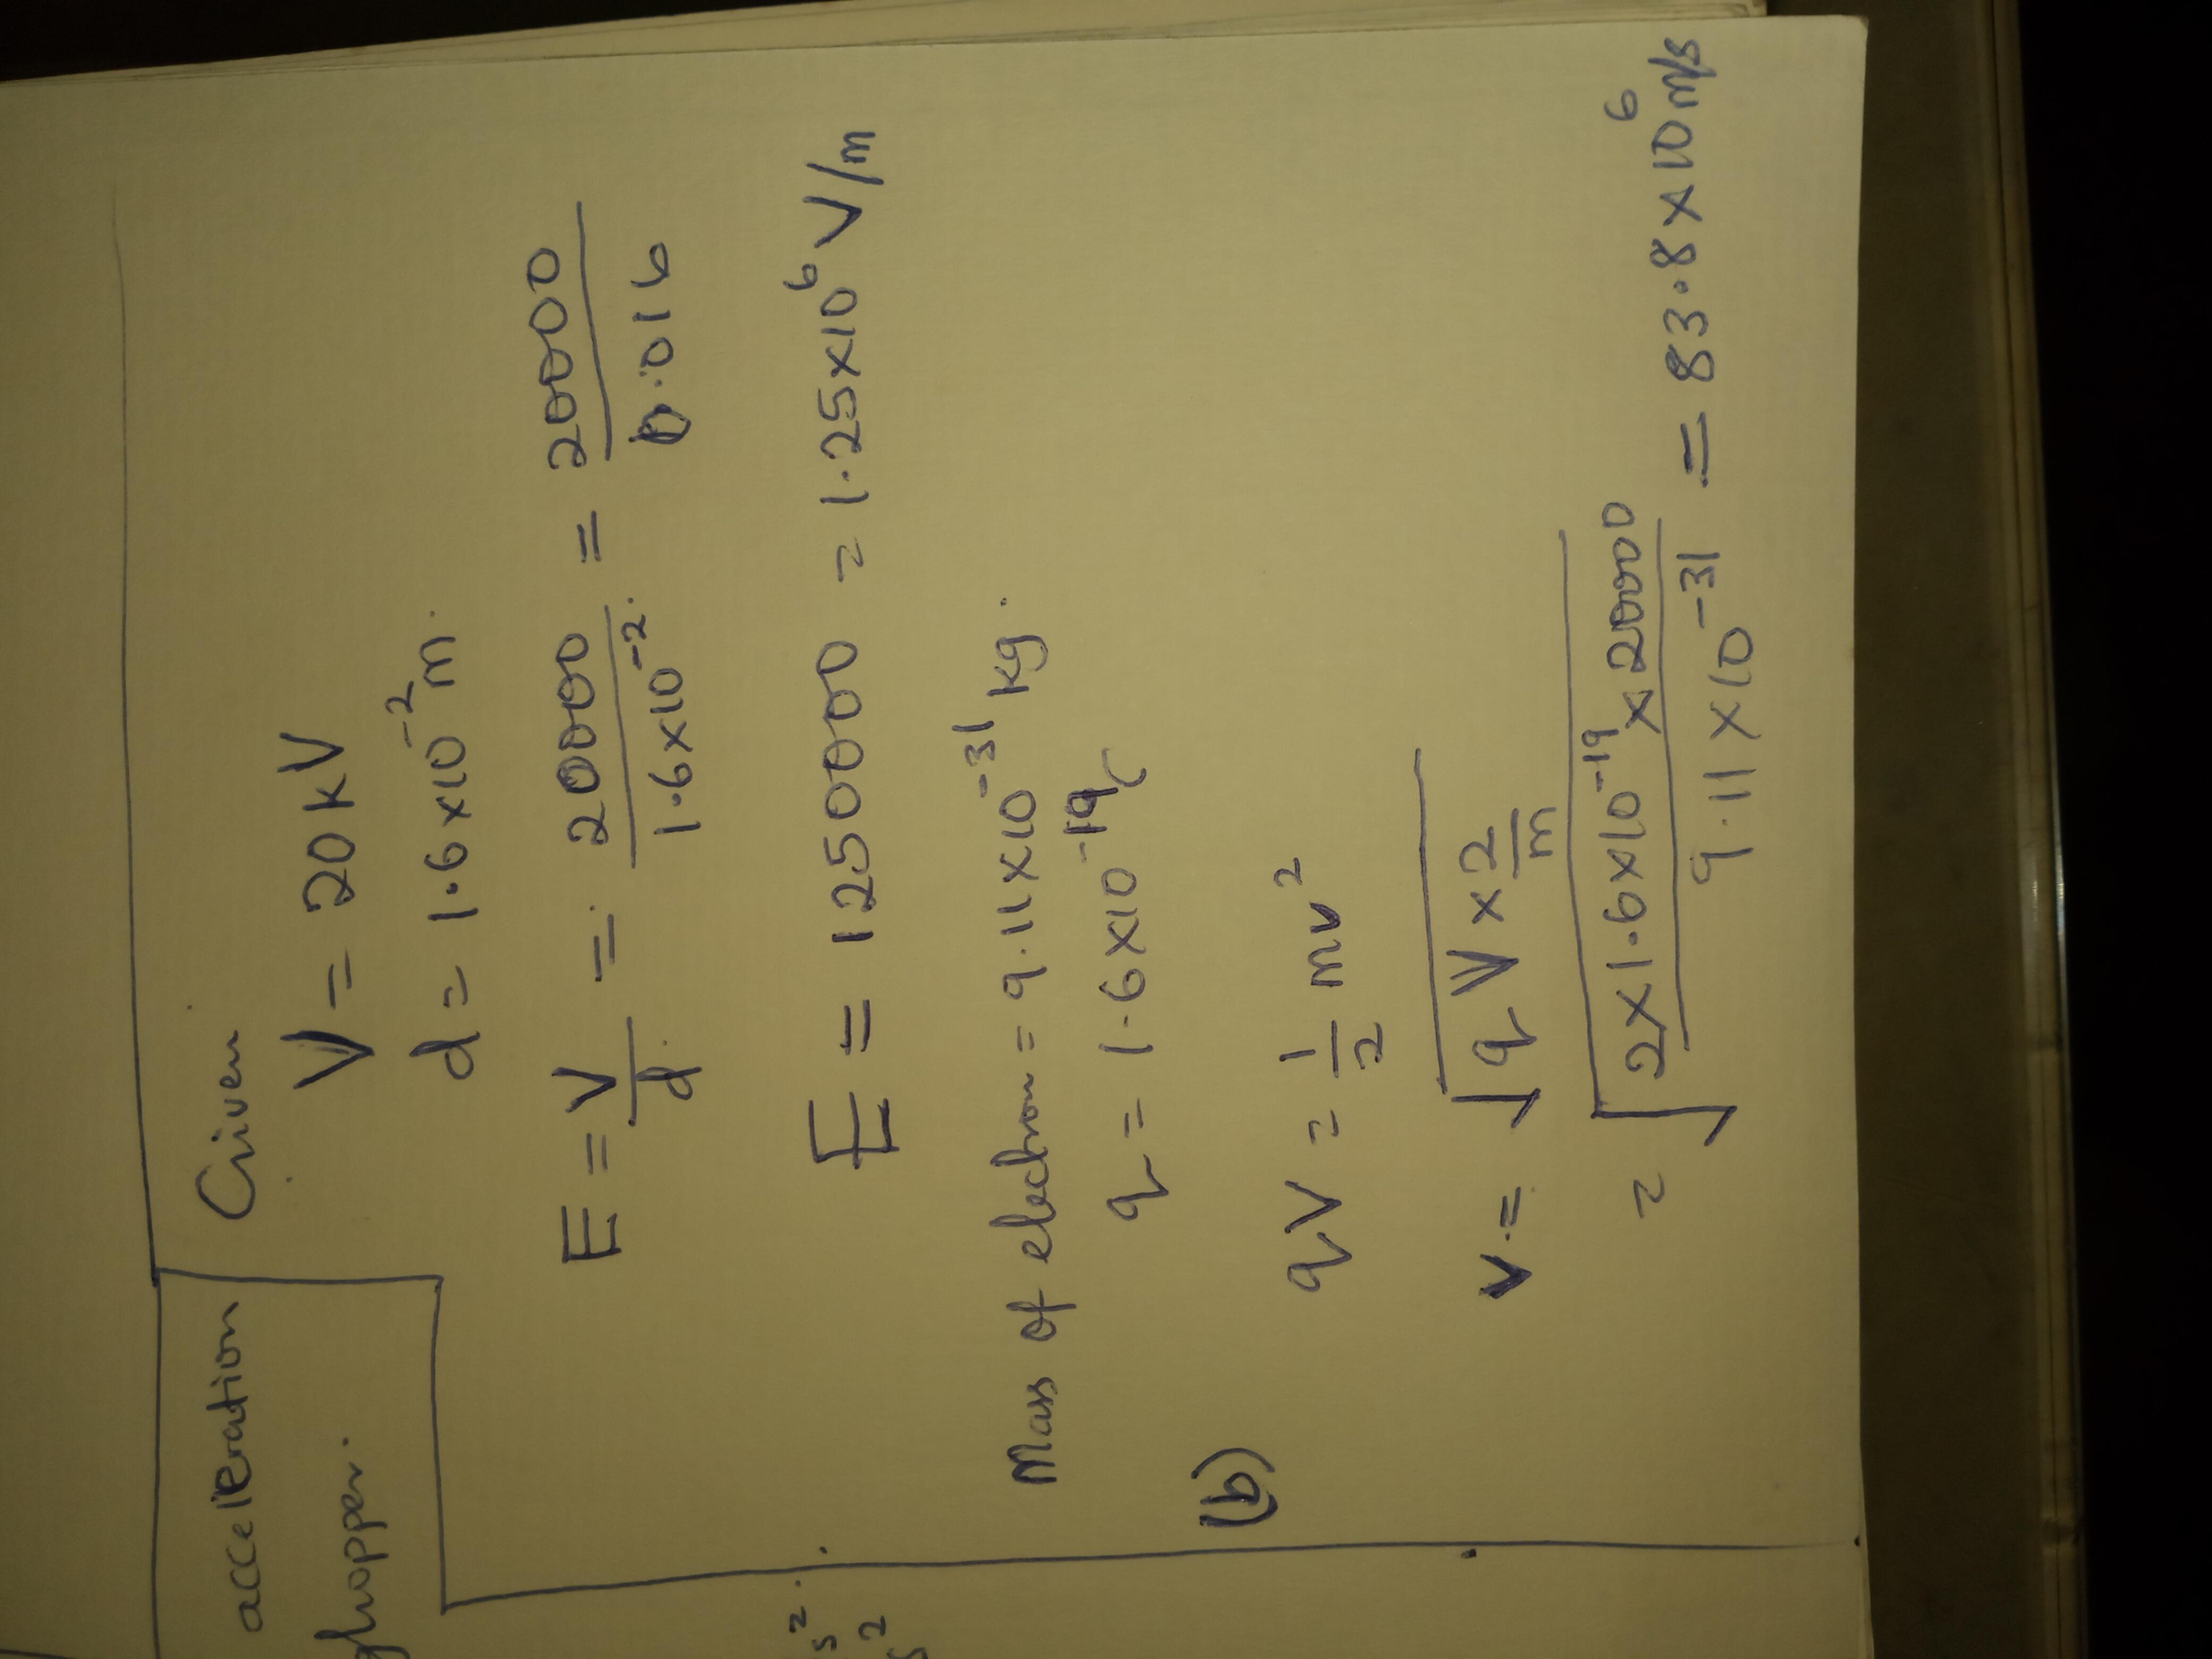 acceleration
Given
V = 20 kV
d = 1.6 x 10⁻² m.
E = V/d = 20000/1.6 x 10⁻² = 20000/0.016
E = 1250000 = 1.25 x 10⁶ V/m
Mass of electron = 9.11 x 10⁻³¹ kg.
q = 1.6 x 10⁻¹⁹ C
(b) qV = 1/2 mv²
v = √(qV x 2/m)
= √(2 x 1.6 x 10⁻¹⁹ x 20000 / 9.11 x 10⁻³¹) = 83.8 x 10⁶ m/s
s².
s²